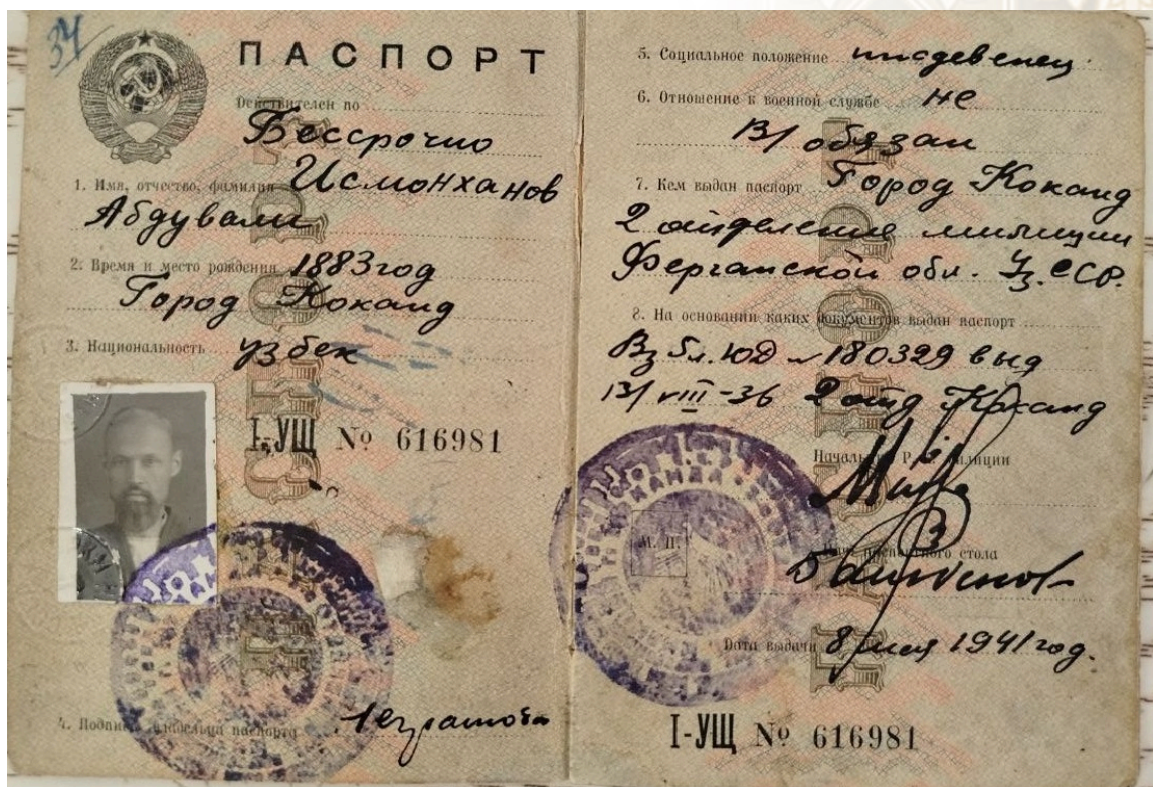 34
ПАСПОРТ
Действителен по
Бессрочно
1. Имя, отчество, фамилия Исмонханов
Абдували
2. Время и место рождения 1883 год
Город Коканд
3. Национальность узбек
I-УЩ № 616981
4. Подпись владельца паспорта неграмотен
5. Социальное положение иждевенец
6. Отношение к военной службе не
в/обязан
7. Кем выдан паспорт Город Коканд
2 отделение милиции
Ферганской обл. Уз.ССР.
8. На основании каких документов выдан паспорт
Вз бл. ЮД № 180329 выд
13/VIII-36 2 отд Коканд
Начальник Р. К. милиции
М. П.
Нач. паспортного стола
Дата выдачи 8 мая 1941 год.
I-УЩ № 616981